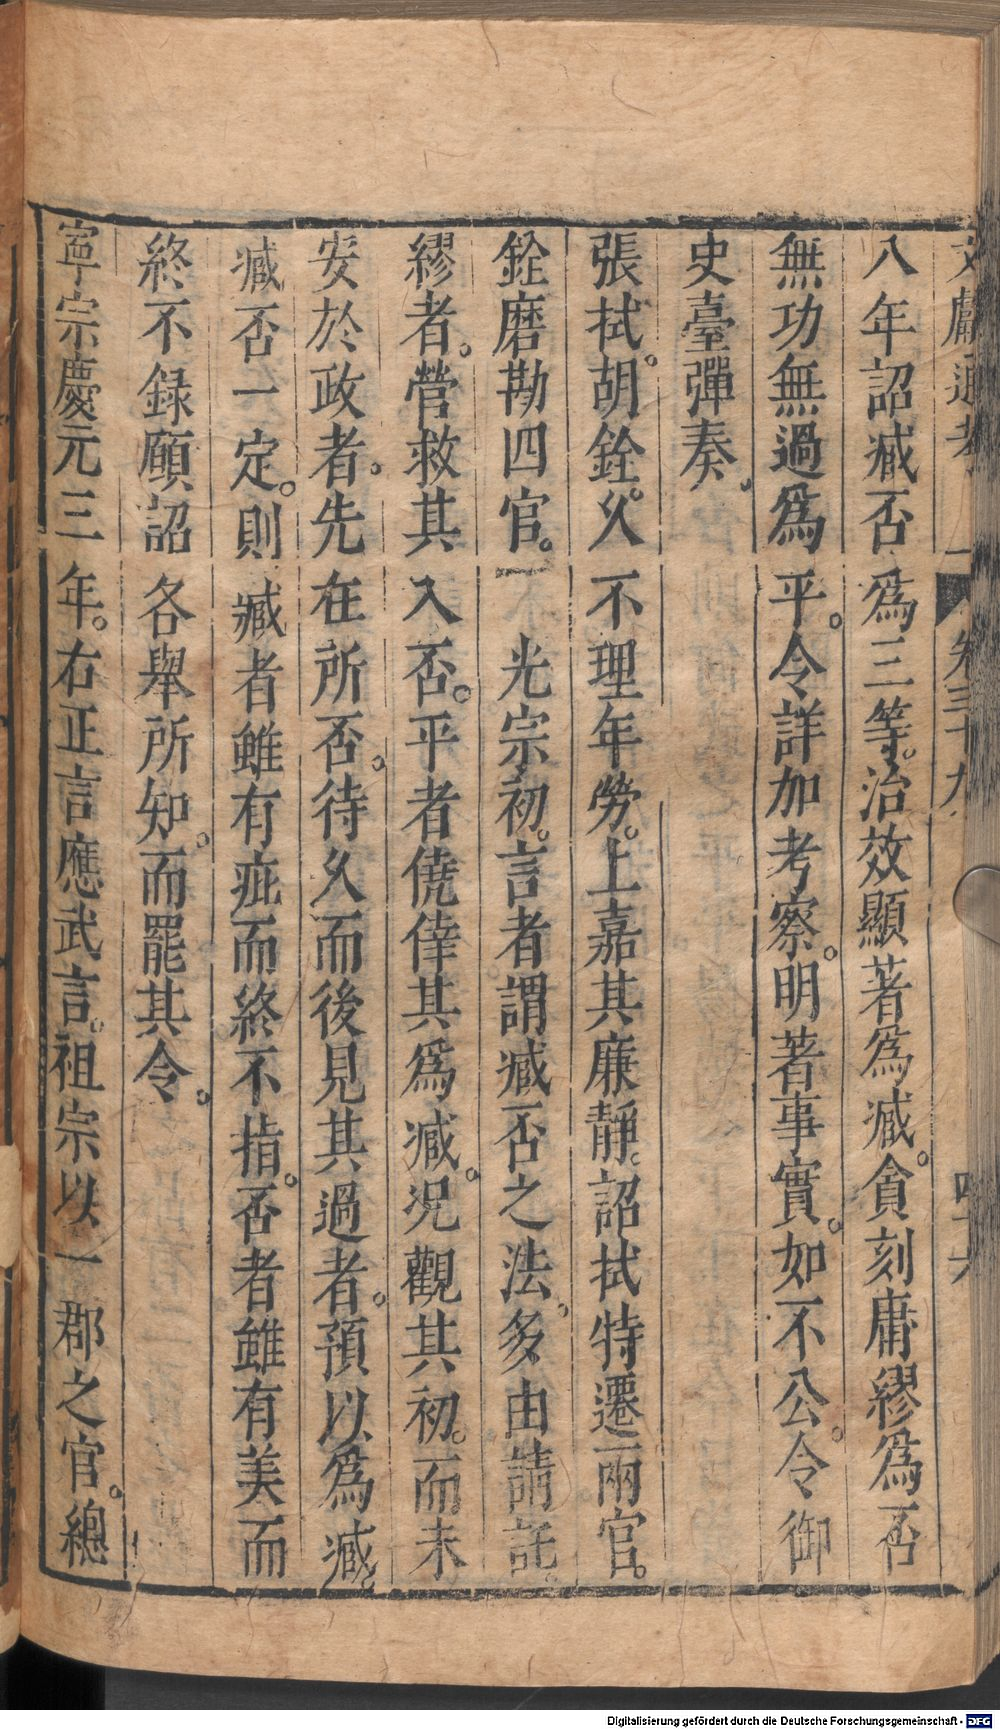 文獻通考 卷三十九 四十六
八年詔臧否爲三等。治效顯著爲臧。貪刻庸繆爲否
無功無過爲平。令詳加考察。明著事實。如不公。令御
史臺彈奏。
張拭。胡銓。久不理年勞。上嘉其廉靜。詔拭特遷兩官。
銓磨勘四官。 光宗初。言者謂臧否之法。多由請託。
繆者。營救其入否。平者僥倖其爲臧。况觀其初。而未
安於政者。先在所否。待久而後見其過者。預以爲臧。
臧否一定。則臧者雖有疵而終不指。否者雖有美而
終不録願詔各舉所知。而罷其令。
寧宗慶元三年。右正言應武言。祖宗以一郡之官。總
Digitalisierung gefördert durch die Deutsche Forschungsgemeinschaft - DFG